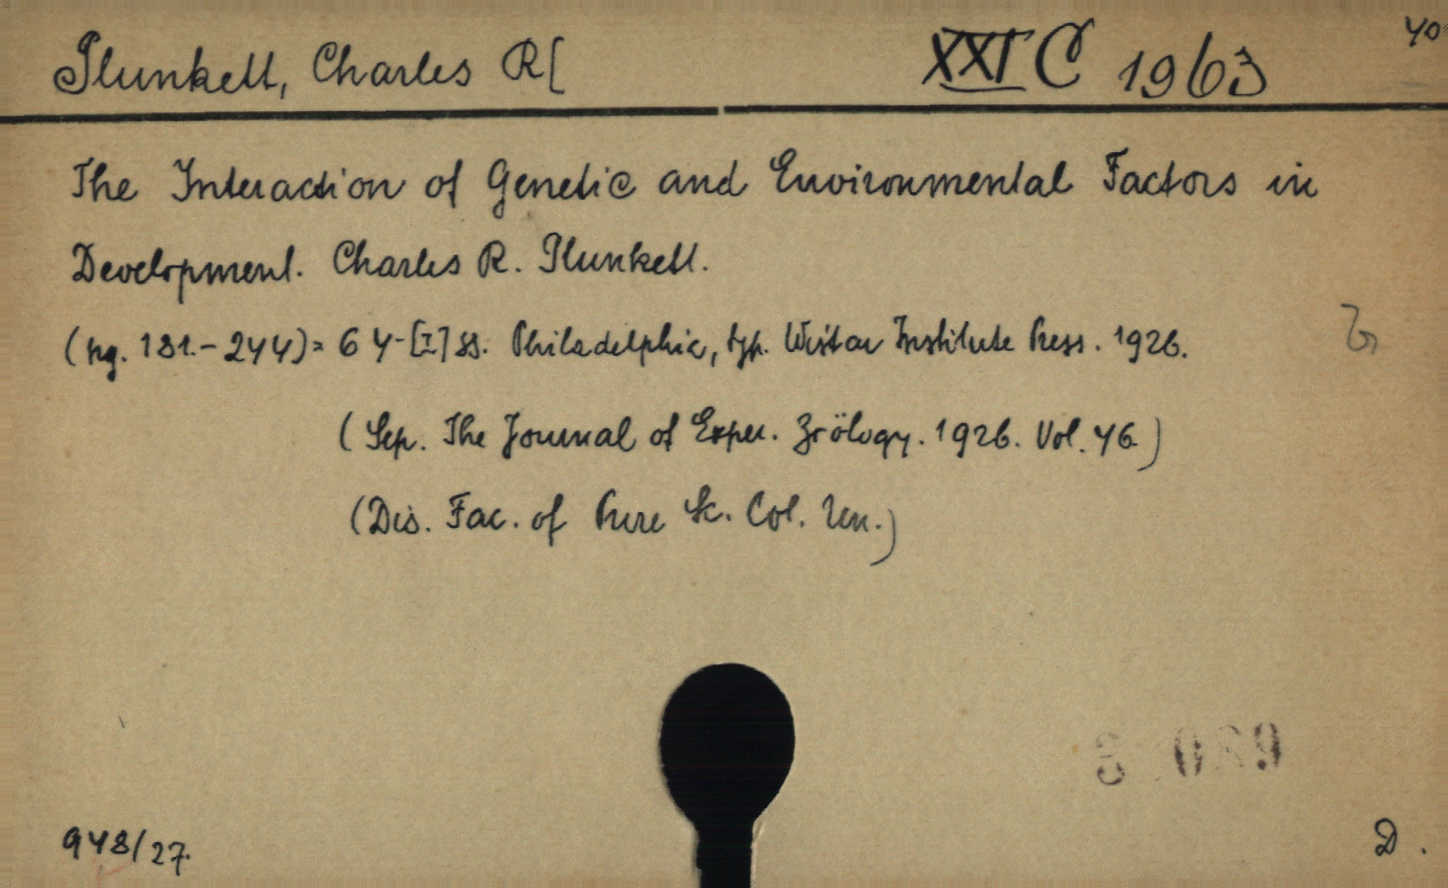 Plunkett, Charles R[ XXI C 1963 40
The Interaction of Genetic and Environmental Factors in
Development. Charles R. Plunkett.
(pg. 181.-244)= 64-[I] ss. Philadelphia, typ. Wistar Institute Press. 1926.
(Sep. The Journal of Exper. Zoölogy. 1926. Vol. 46)
(Dis. Fac. of Pure Sc. Col. Un.)
948/27. D.